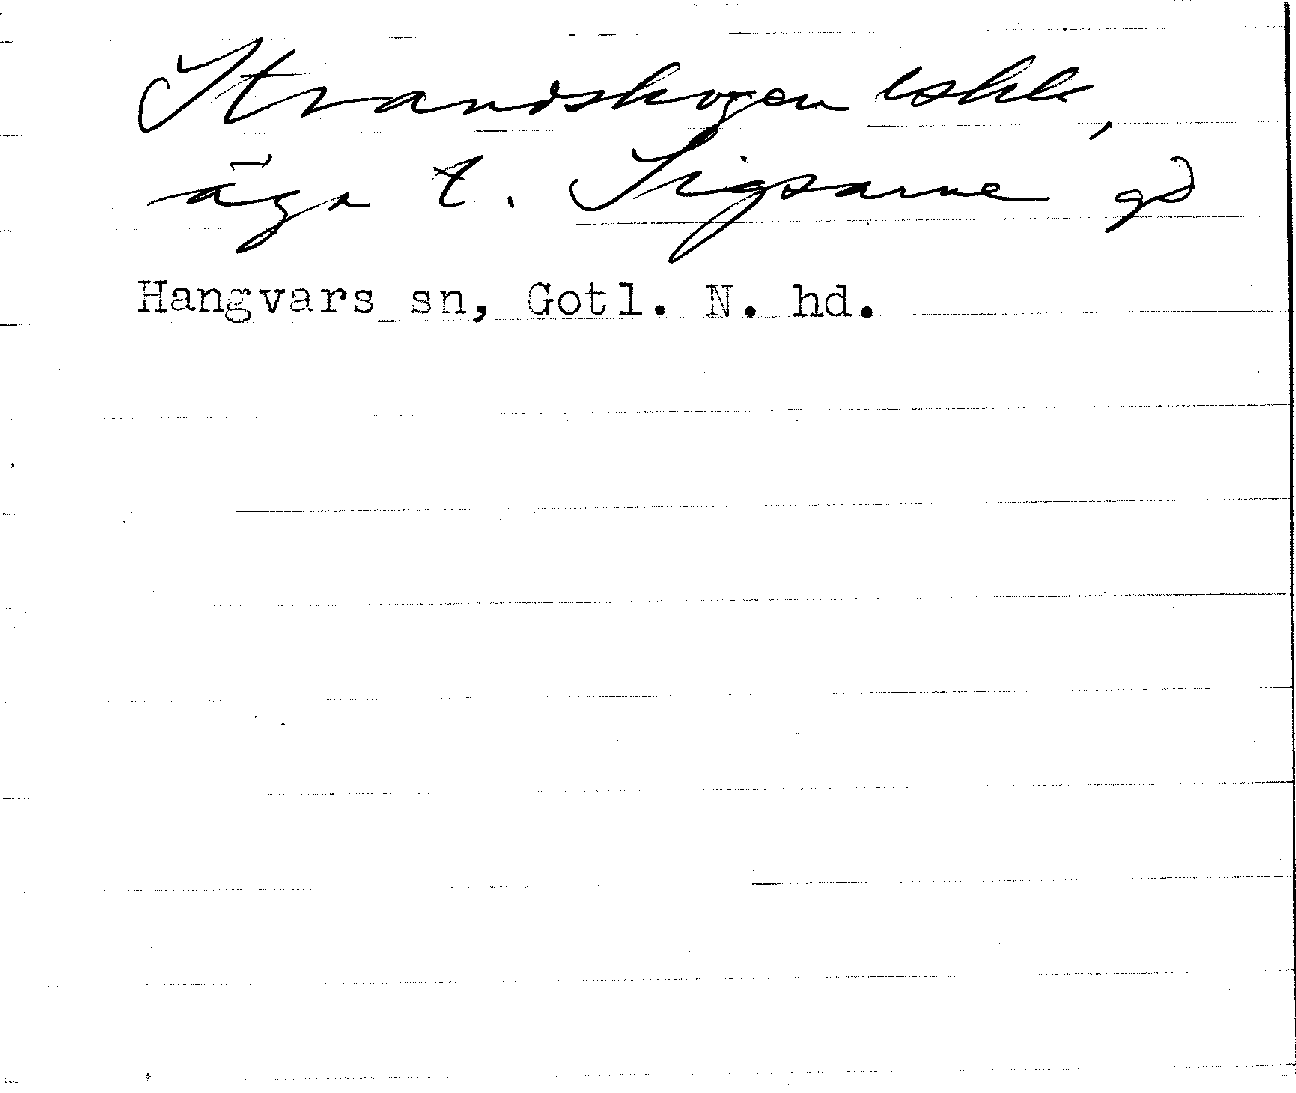 Strandskogen
äga t. Sigsarve gd
Hangvars sn, Gotl. N. hd.